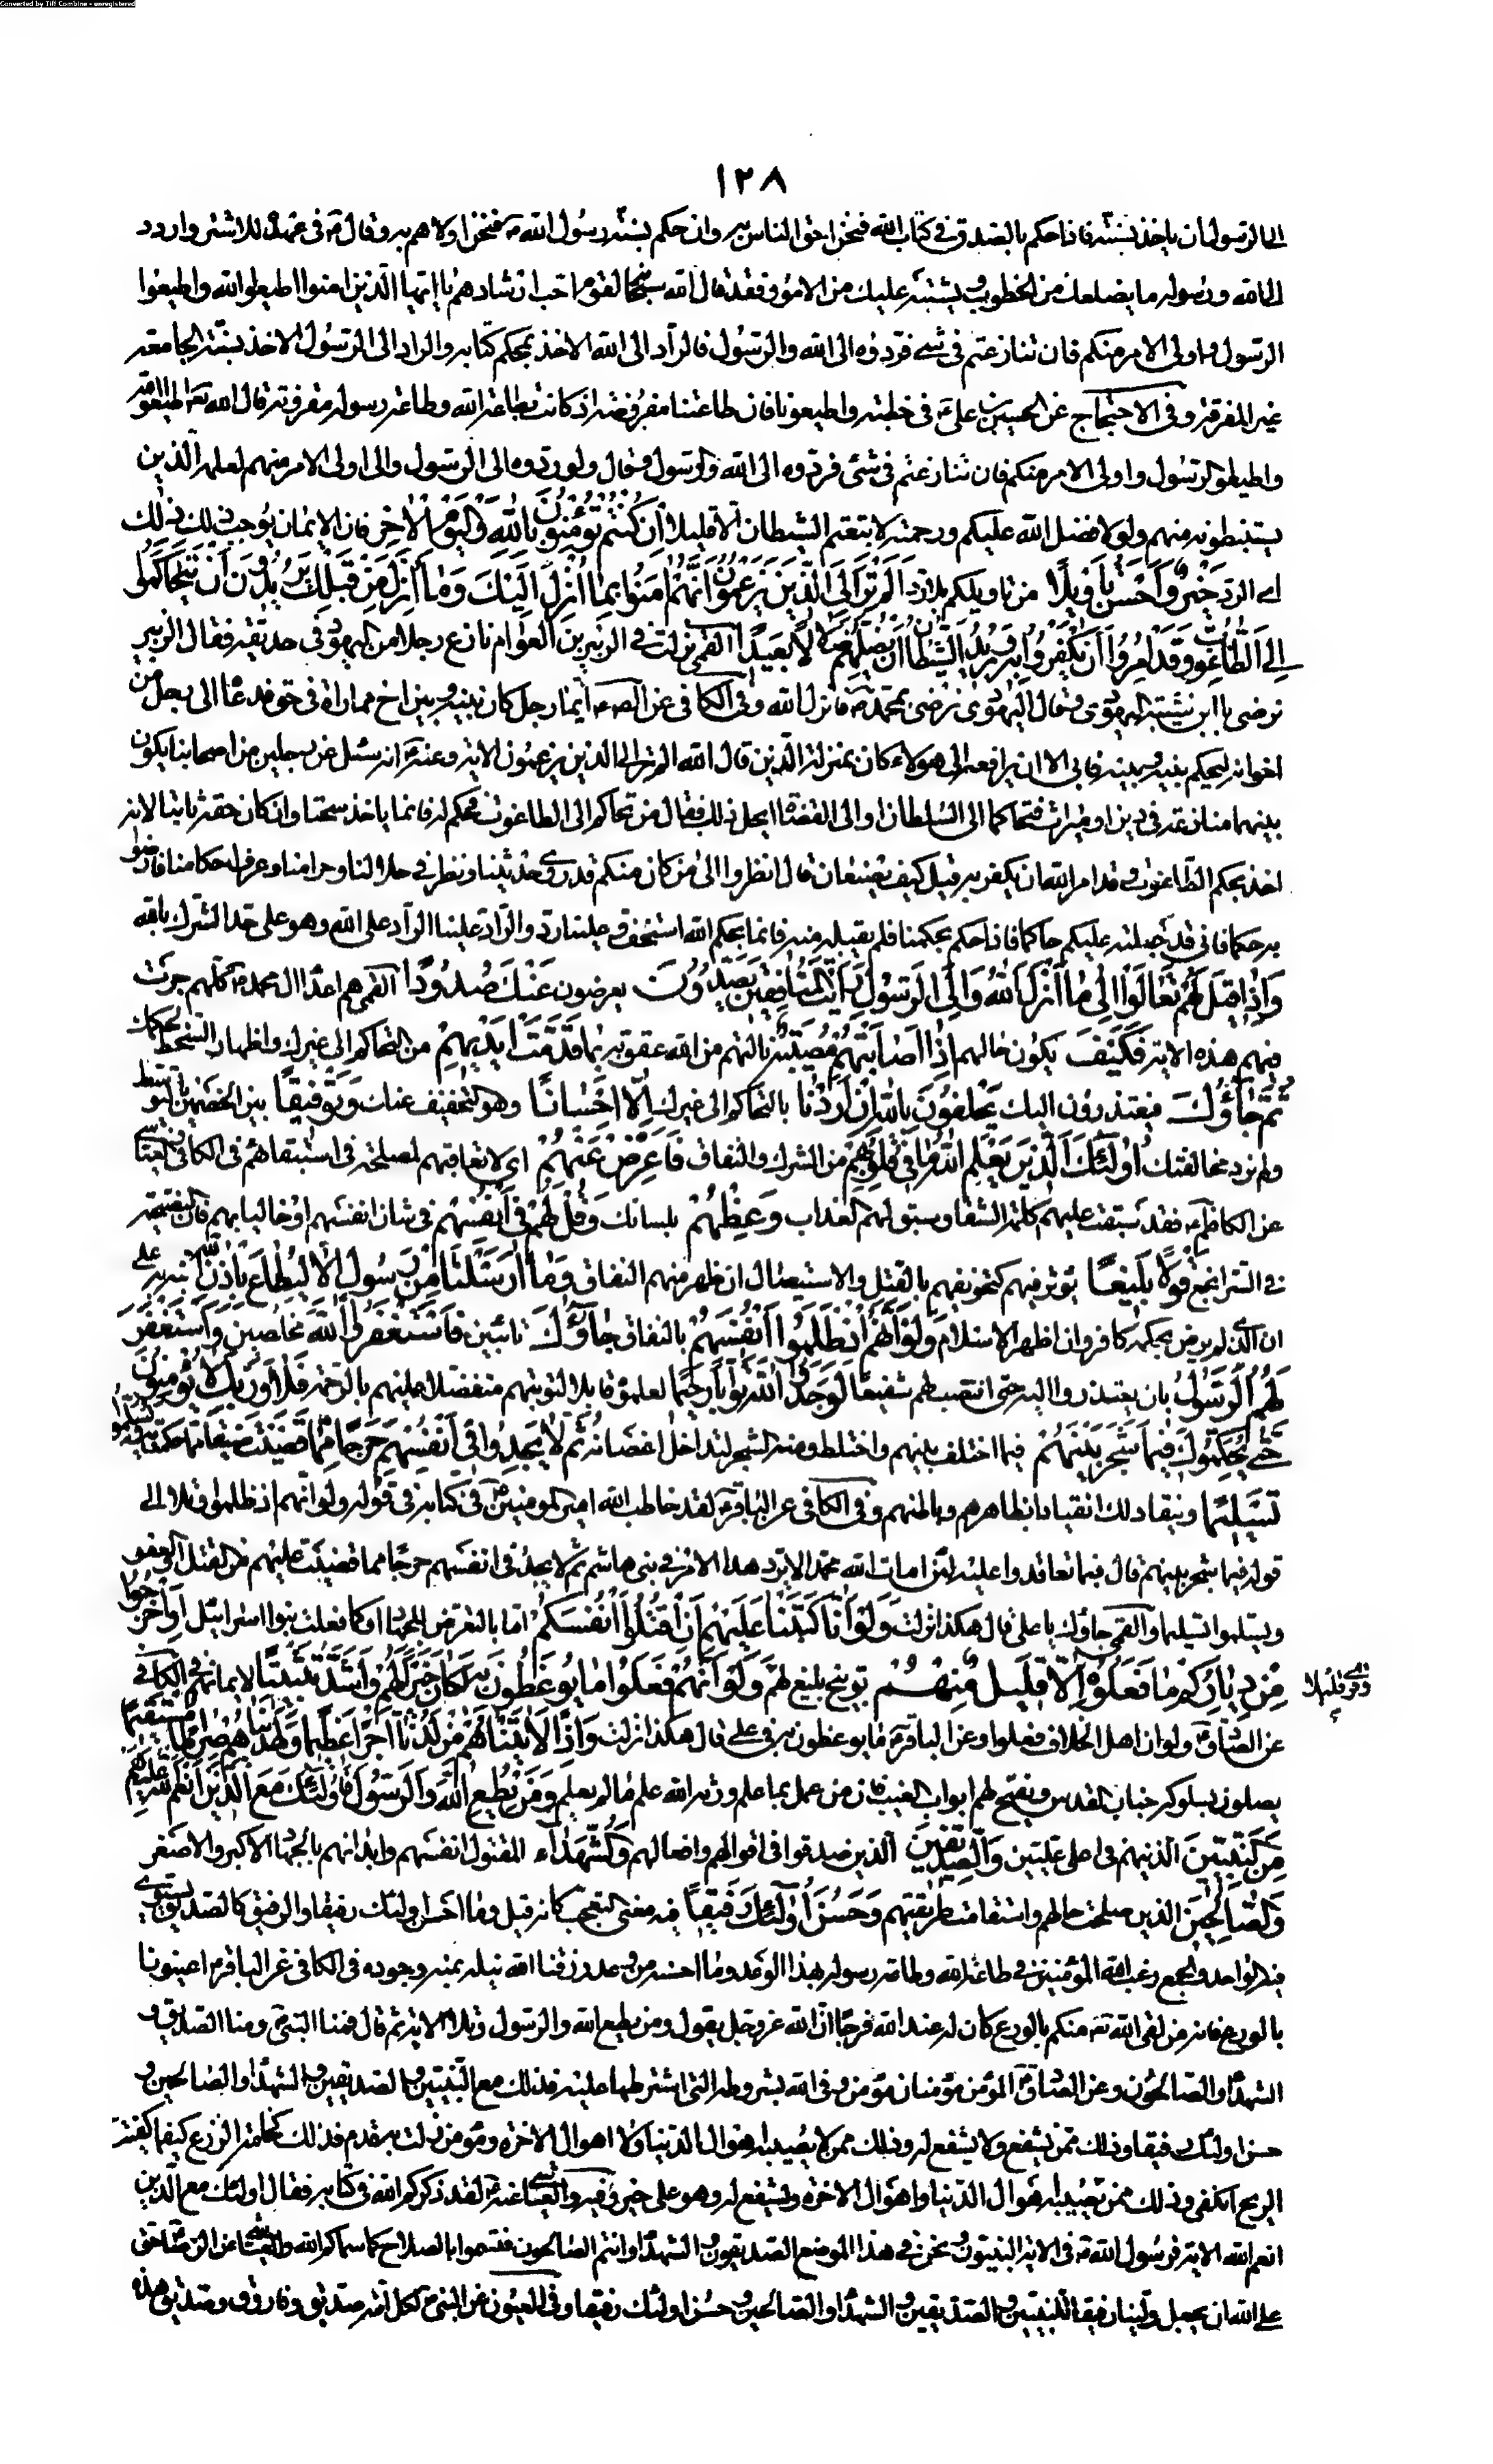 Converted by Tiff Combine - unregistered
١٢٨
الى الرسول ان ياخذ بسنته فاذا حكم بالصدق في كتاب الله فنحن احق الناس به وان حكم بسنة رسول الله ص فنحن اولاهم به وقال ع في عهده للاشتر واردد
الى الله ورسوله ما يضلعك من الخطوب ويشتبه عليك من الامور فقد قال الله سبحانه لقوم احب ارشادهم يا ايها الذين امنوا اطيعوا الله واطيعوا
الرسول واولى الامر منكم فان تنازعتم في شئ فردوه الى الله والرسول فالراد الى الله الاخذ بمحكم كتابه والراد الى الرسول الاخذ بسنته الجامعة
غير المفرقة وفي الاحتجاج عن الحسين بن علي ع في خطبته واطيعونا فان طاعتنا مفروضة اذ كانت بطاعة الله وطاعة رسوله مقرونة قال الله تعالى اطيعوا الله
واطيعوا الرسول واولى الامر منكم فان تنازعتم في شئ فردوه الى الله والرسول وقال ولو ردوه الى الرسول والى اولى الامر منهم لعلمه الذين
يستنبطونه منهم ولولا فضل الله عليكم ورحمته لاتبعتم الشيطان الا قليلا اِنْ كُنْتُمْ تُؤْمِنُونَ بِاللهِ وَالْيَوْمِ الْاٰخِرِ فان الايمان يوجب ذلك ذلِكَ
اى الرد خَيْرٌ وَاَحْسَنُ تَاْوِيلًا من تاويلكم بلا رد اَلَمْ تَرَ اِلَى الَّذِينَ يَزْعُمُونَ اَنَّهُمْ اٰمَنُوا بِمٰا اُنْزِلَ اِلَيْكَ وَمٰا اُنْزِلَ مِنْ قَبْلِكَ يُرِيدُونَ اَنْ يَتَحٰاكَمُوا
اِلَى الطّٰاغُوتِ وَقَدْ اُمِرُوا اَنْ يَكْفُرُوا بِهِ وَيُرِيدُ الشَّيْطٰانُ اَنْ يُضِلَّهُمْ ضَلٰالًا بَعِيدًا القمى نزلت في الزبير بن العوام نازع رجلا من اليهود في حديقة فقال الزبير
نرضى بابن شيبة اليهودى وقال اليهودى نرضى بمحمد ص فانزل الله وفي الكافى عن الص ع ايما رجل كان بينه وبين اخ مماراة في حق فدعاه الى رجل من
اخوانه ليحكم بينه وبينه فابى الا ان يرافعه الى هؤلاء كان بمنزلة الذين قال الله الم تر الى الذين يزعمون الاية وعنه ع انه سئل عن رجلين من اصحابنا يكون
بينهما منازعة في دين او ميراث فتحاكما الى السلطان او الى القضاة ايحل ذلك فقال من تحاكم الى الطاغوت فحكم له فانما ياخذ سحتا وان كان حقه ثابتا لانه
اخذ بحكم الطاغوت وقد امر الله ان يكفر به قيل كيف يصنعان قال انظروا الى من كان منكم قد روى حديثنا ونظر في حلالنا وحرامنا وعرف احكامنا فارضوا
به حكما فانى قد جعلته عليكم حاكما فاذا حكم بحكمنا فلم يقبله منه فانما بحكم الله استخف وعلينا رد والراد علينا الراد على الله وهو على حد الشرك بالله
وَاِذٰا قِيلَ لَهُمْ تَعٰالَوْا اِلٰى مٰا اَنْزَلَ اللهُ وَاِلَى الرَّسُولِ رَاَيْتَ الْمُنٰافِقِينَ يَصُدُّونَ يعرضون عَنْكَ صُدُودًا القمى هم اعداء ال محمد ص كلهم جرت
فيهم هذه الاية فَكَيْفَ يكون حالهم اِذٰا اَصٰابَتْهُمْ مُصِيبَةٌ نالتهم من الله عقوبة بِمٰا قَدَّمَتْ اَيْدِيهِمْ من التحاكم الى غيرك واظهار السخط لحكمك
ثُمَّ جٰاؤُكَ فيعتذرون اليك يَحْلِفُونَ بِاللهِ اِنْ اَرَدْنٰا بالتحاكم الى غيرك اِلّٰا اِحْسٰانًا وهو التخفيف عنك وَتَوْفِيقًا بين الخصمين بالتوسط
ولم نرد مخالفتك اُولٰئِكَ الَّذِينَ يَعْلَمُ اللهُ مٰا فِي قُلُوبِهِمْ من الشرك والنفاق فَاَعْرِضْ عَنْهُمْ اى لا تعاقبهم لمصلحة في استبقائهم في الكافى والعياشى
عن الكاظم ع فقد سبقت عليهم كلمة الشقاء وسبق لهم العذاب وَعِظْهُمْ بلسانك وَقُلْ لَهُمْ فِي اَنْفُسِهِمْ في شان انفسهم او خاليا بهم فان النصيحة
في السر انجع قَوْلًا بَلِيغًا يؤثر فيهم كتخويفهم بالقتل والاستيصال ان ظهر منهم النفاق وَمٰا اَرْسَلْنٰا مِنْ رَسُولٍ اِلّٰا لِيُطٰاعَ بِاِذْنِ اللهِ نبه به على
ان الذى لم يرض بحكمه كافر وان اظهر الاسلام وَلَوْ اَنَّهُمْ اِذْ ظَلَمُوا اَنْفُسَهُمْ بالنفاق جٰاؤُكَ تائبين فَاسْتَغْفَرُوا اللهَ مخلصين وَاسْتَغْفَرَ
لَهُمُ الرَّسُولُ بان يعتذروا اليه حتى انتصب لهم شفيعا لَوَجَدُوا اللهَ تَوّٰابًا رَحِيمًا لعلموه قابلا لتوبتهم متفضلا عليهم بالرحمة فَلٰا وَرَبِّكَ لٰا يُؤْمِنُونَ
حَتّٰى يُحَكِّمُوكَ فِيمٰا شَجَرَ بَيْنَهُمْ فيما اختلف بينهم واختلط ومنه الشجر لتداخل اغصانه ثُمَّ لٰا يَجِدُوا فِي اَنْفُسِهِمْ حَرَجًا مِمّٰا قَضَيْتَ ضيقا مما حكمت به وَيُسَلِّمُوا
تَسْلِيمًا وينقادوا لك انقيادا بظاهرهم وباطنهم وفي الكافى عن الباقر ع لقد خاطب الله امير المؤمنين ع في كتابه في قوله ولو انهم اذ ظلموا وتلا الى
قوله فيما شجر بينهم قال فيما تعاقدوا عليه لئن امات الله محمدا لا يردوا هذا الامر في بنى هاشم ثم لا يجدوا في انفسهم حرجا مما قضيت عليهم من القتل او العفو
ويسلموا تسليما والقمى جاؤك يا على قال هكذا نزلت وَلَوْ اَنّٰا كَتَبْنٰا عَلَيْهِمْ اَنِ اقْتُلُوا اَنْفُسَكُمْ اما بالتعرض للجهاد او كما فعلت بنوا اسرائيل اَوِ اخْرُجُوا
مِنْ دِيٰارِكُمْ مٰا فَعَلُوهُ اِلّٰا قَلِيلٌ مِنْهُمْ توبيخ بليغ لهم وَلَوْ اَنَّهُمْ فَعَلُوا مٰا يُوعَظُونَ بِهِ لَكٰانَ خَيْرًا لَهُمْ وَاَشَدَّ تَثْبِيتًا لايمانهم في الكافى
عن الصادق ع ولو ان اهل الخلاف فعلوا وعن الباقر ع ما يوعظون به في على قال هكذا نزلت وَاِذًا لَاٰتَيْنٰاهُمْ مِنْ لَدُنّٰا اَجْرًا عَظِيمًا وَلَهَدَيْنٰاهُمْ صِرٰاطًا مُسْتَقِيمًا
يصلون بسلوكه جناب القدس ويفتح لهم ابواب الغيب فان من عمل بما علم ورثه الله علم ما لم يعلم وَمَنْ يُطِعِ اللهَ وَالرَّسُولَ فَاُولٰئِكَ مَعَ الَّذِينَ اَنْعَمَ اللهُ عَلَيْهِمْ
مِنَ النَّبِيِّينَ الذينهم في اعلى عليين وَالصِّدِّيقِينَ الذين صدقوا في اقوالهم وافعالهم وَالشُّهَدٰاءِ المقتول انفسهم وابدانهم بالجهاد الاكبر والاصغر
وَالصّٰالِحِينَ الذين صلحت حالهم واستقامت طريقتهم وَحَسُنَ اُولٰئِكَ رَفِيقًا فيه معنى التعجب كانه قيل وما احسن اولئك رفيقا والرفيق كالصديق يستوى
فيه الواحد والجمع رغب الله المؤمنين في طاعة الله وطاعة رسوله بهذا الوعد وما احسنه من وعد رزقنا الله نيله بمنه وجوده في الكافى عن الباقر ع اعينونا
بالورع فانه من لقى الله تع منكم بالورع كان له عند الله فرجا ان الله عز وجل يقول ومن يطع الله والرسول وتلا الاية ثم قال فمنا النبى ومنا الصديق و
الشهداء والصالحون وعن الصادق ع المؤمن مؤمنان مؤمن وفى الله بشروطه التى اشترطها عليه فذلك مع النبيين والصديقين والشهداء والصالحين و
حسن اولئك رفيقا وذلك ممن يشفع ولا يشفع له وذلك ممن لا يصيبه اهوال الدنيا ولا اهوال الاخرة ومؤمن زلت به قدم فذلك كخامة الزرع كيفما كفئته
الريح انكفى وذلك ممن يصيبه اهوال الدنيا واهوال الاخرة ويشفع له وهو على خير وفيه والعياشى عنه ع لقد ذكركم الله في كتابه فقال اولئك مع الذين
انعم الله الاية فرسول الله ص في الاية النبيون ونحن في هذا الموضع الصديقون والشهداء وانتم الصالحون فتسموا بالصلاح كما سماكم الله والعياشى عن الرضا ع حق
على الله ان يجعل ولينا رفيقا للنبيين والصديقين والشهداء والصالحين وحسن اولئك رفيقا وفي العيون عن النبى ص لكل امة صديق وفاروق وصديق هذه